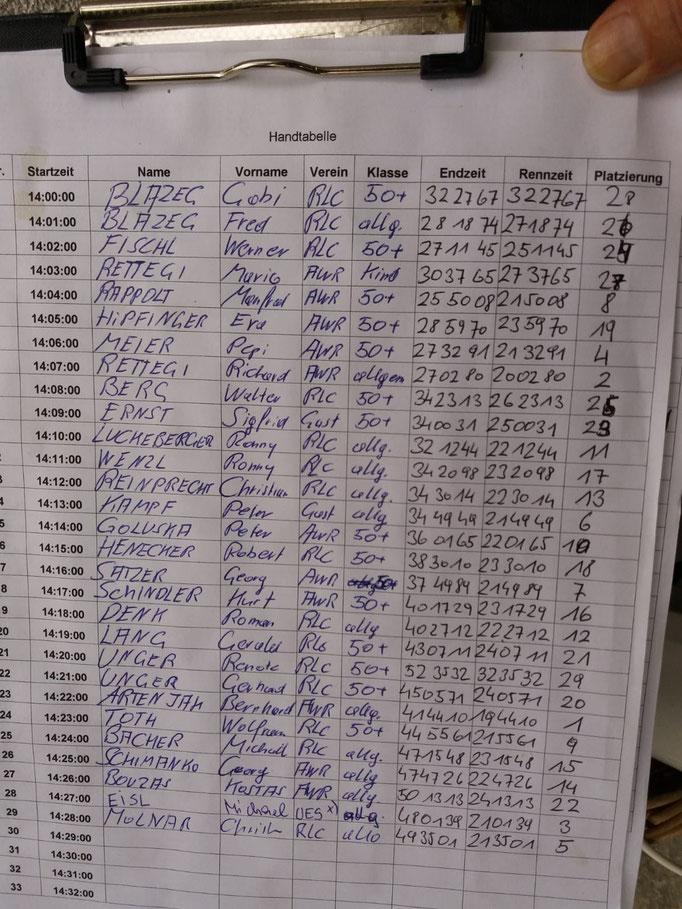 Handtabelle
r. Startzeit Name Vorname Verein Klasse Endzeit Rennzeit Platzierung
14:00:00 BLAZEG Gabi RLC 50+ 322767 322767 28
14:01:00 BLAZEG Fred RLC allg. 281874 271874 26
14:02:00 FISCHL Werner RLC 50+ 271145 251145 24
14:03:00 RETTEGI Mario AWR Kind 303765 273765 27
14:04:00 RAPPOLT Manfred AWR 50+ 255008 215008 8
14:05:00 HIPFINGER Eva AWR 50+ 285970 235970 19
14:06:00 MEIER Pepi AWR 50+ 273291 213291 4
14:07:00 RETTEGI Richard AWR allgem 270280 200280 2
14:08:00 BERG Walter RLC 50+ 342313 262313 25
14:09:00 ERNST Sigfrid Gast 50+ 340031 250031 23
14:10:00 LUCKEBERGER Ronny RLC allg. 321244 221244 11
14:11:00 WENZL Ronny RLC allg. 342098 232098 17
14:12:00 REINPRECHT Christian RLC allg. 343014 223014 13
14:13:00 KAMPF Peter Gast allg 344949 214949 6
14:14:00 GOLUSKA Peter AWR 50+ 360165 220165 10
14:15:00 HENECKER Robert RLC 50+ 383010 233010 18
14:16:00 SATZER Georg AWR 50+ 374984 214984 7
14:17:00 SCHINDLER Kurt AWR 50+ 401729 231729 16
14:18:00 DENK Roman RLC allg 402712 222712 12
20 14:19:00 LANG Gerald RLC 50+ 430711 240711 21
21 14:20:00 UNGER Renate RLC 50+ 523532 323532 29
22 14:21:00 UNGER Gerhard RLC 50+ 450571 240571 20
23 14:22:00 ARTENJAK Bernhard AWR allg. 414410 194410 1
24 14:23:00 TOTH Wolfram RLC 50+ 445561 215561 9
25 14:24:00 BACHER Michael RLC allg. 471548 231548 15
26 14:25:00 SCHIMANKO Georg AWR allg 474726 224726 14
27 14:26:00 BOUZAS KOSTAS AWR allg. 501313 241313 22
28 14:27:00 EISL Michael UES x) allg. 480139 210139 3
29 14:28:00 MOLNAR RLC allg 493501 213501 5
30 14:29:00
31 14:30:00
32 14:31:00
33 14:32:00